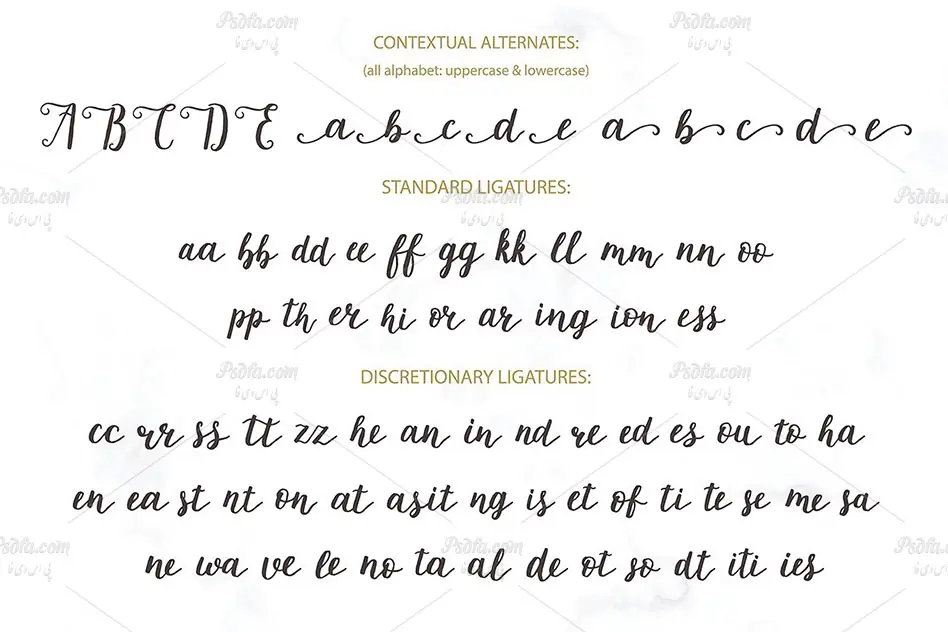 CONTEXTUAL ALTERNATES:
(all alphabet: uppercase & lowercase)
A B C D E a b c d e a b c d e
STANDARD LIGATURES:
aa bb dd ee ff gg kk ll mm nn oo
pp th er hi or ar ing ion ess
DISCRETIONARY LIGATURES:
cc rr ss tt zz he an in nd re ed es ou to ha
en ea st nt on at as it ng is et of ti te se me sa
ne wa ve le no ta al de ot so dt iti ies
Psdfa.com
پی‌اس‌دی‌فا